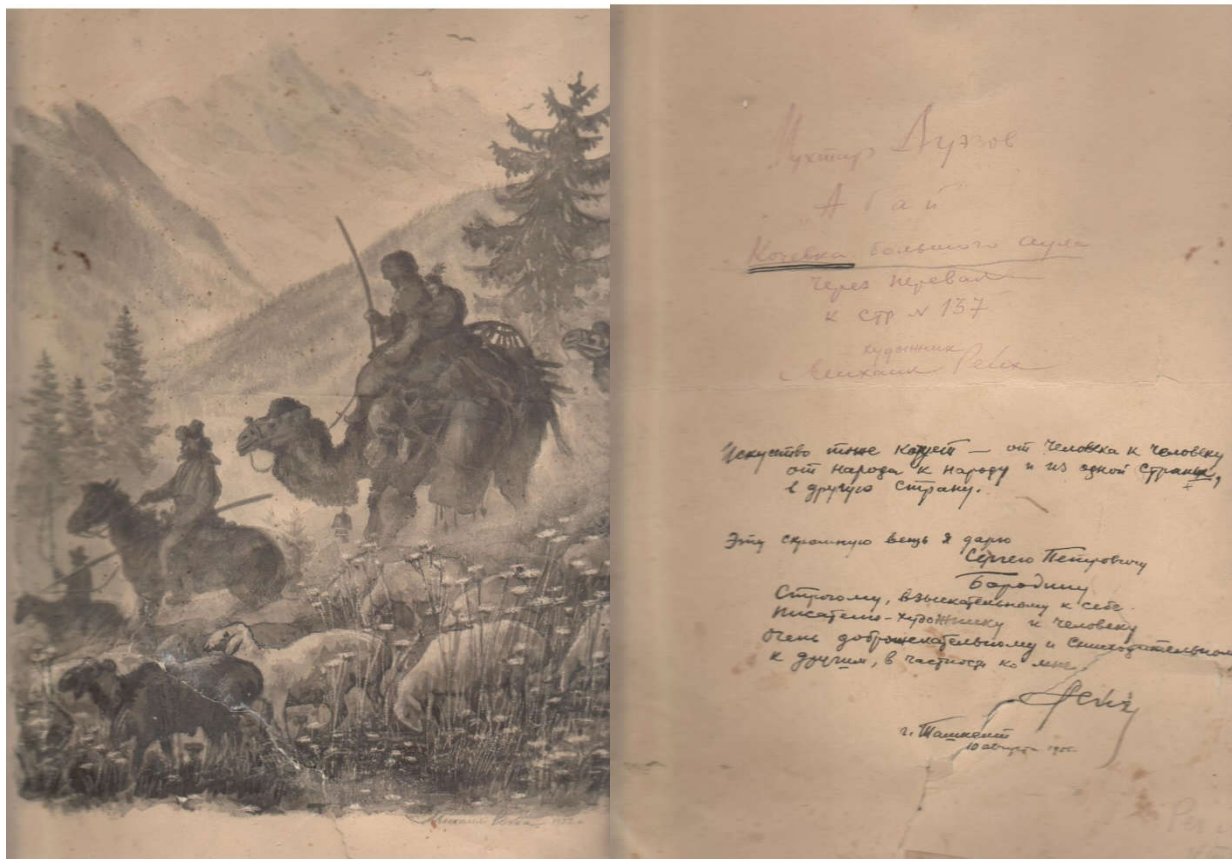 Михаил Рейх
Мухтар Ауэзов
Абай
Кочевка большого аула
через перевал
к стр № 157
художник
Михаил Рейх
Искусство тоже кочует — от человека к человеку
от народа к народу и из одной страны,
в другую страну.
Эту скромную вещь я дарю
Сергею Петровичу
Бородину
Строгому, взыскательному к себе
писателю-художнику и человеку
очень доброжелательному и снисходительному
к другим, в частности ко мне
Рейх
г. Ташкент
10 августа